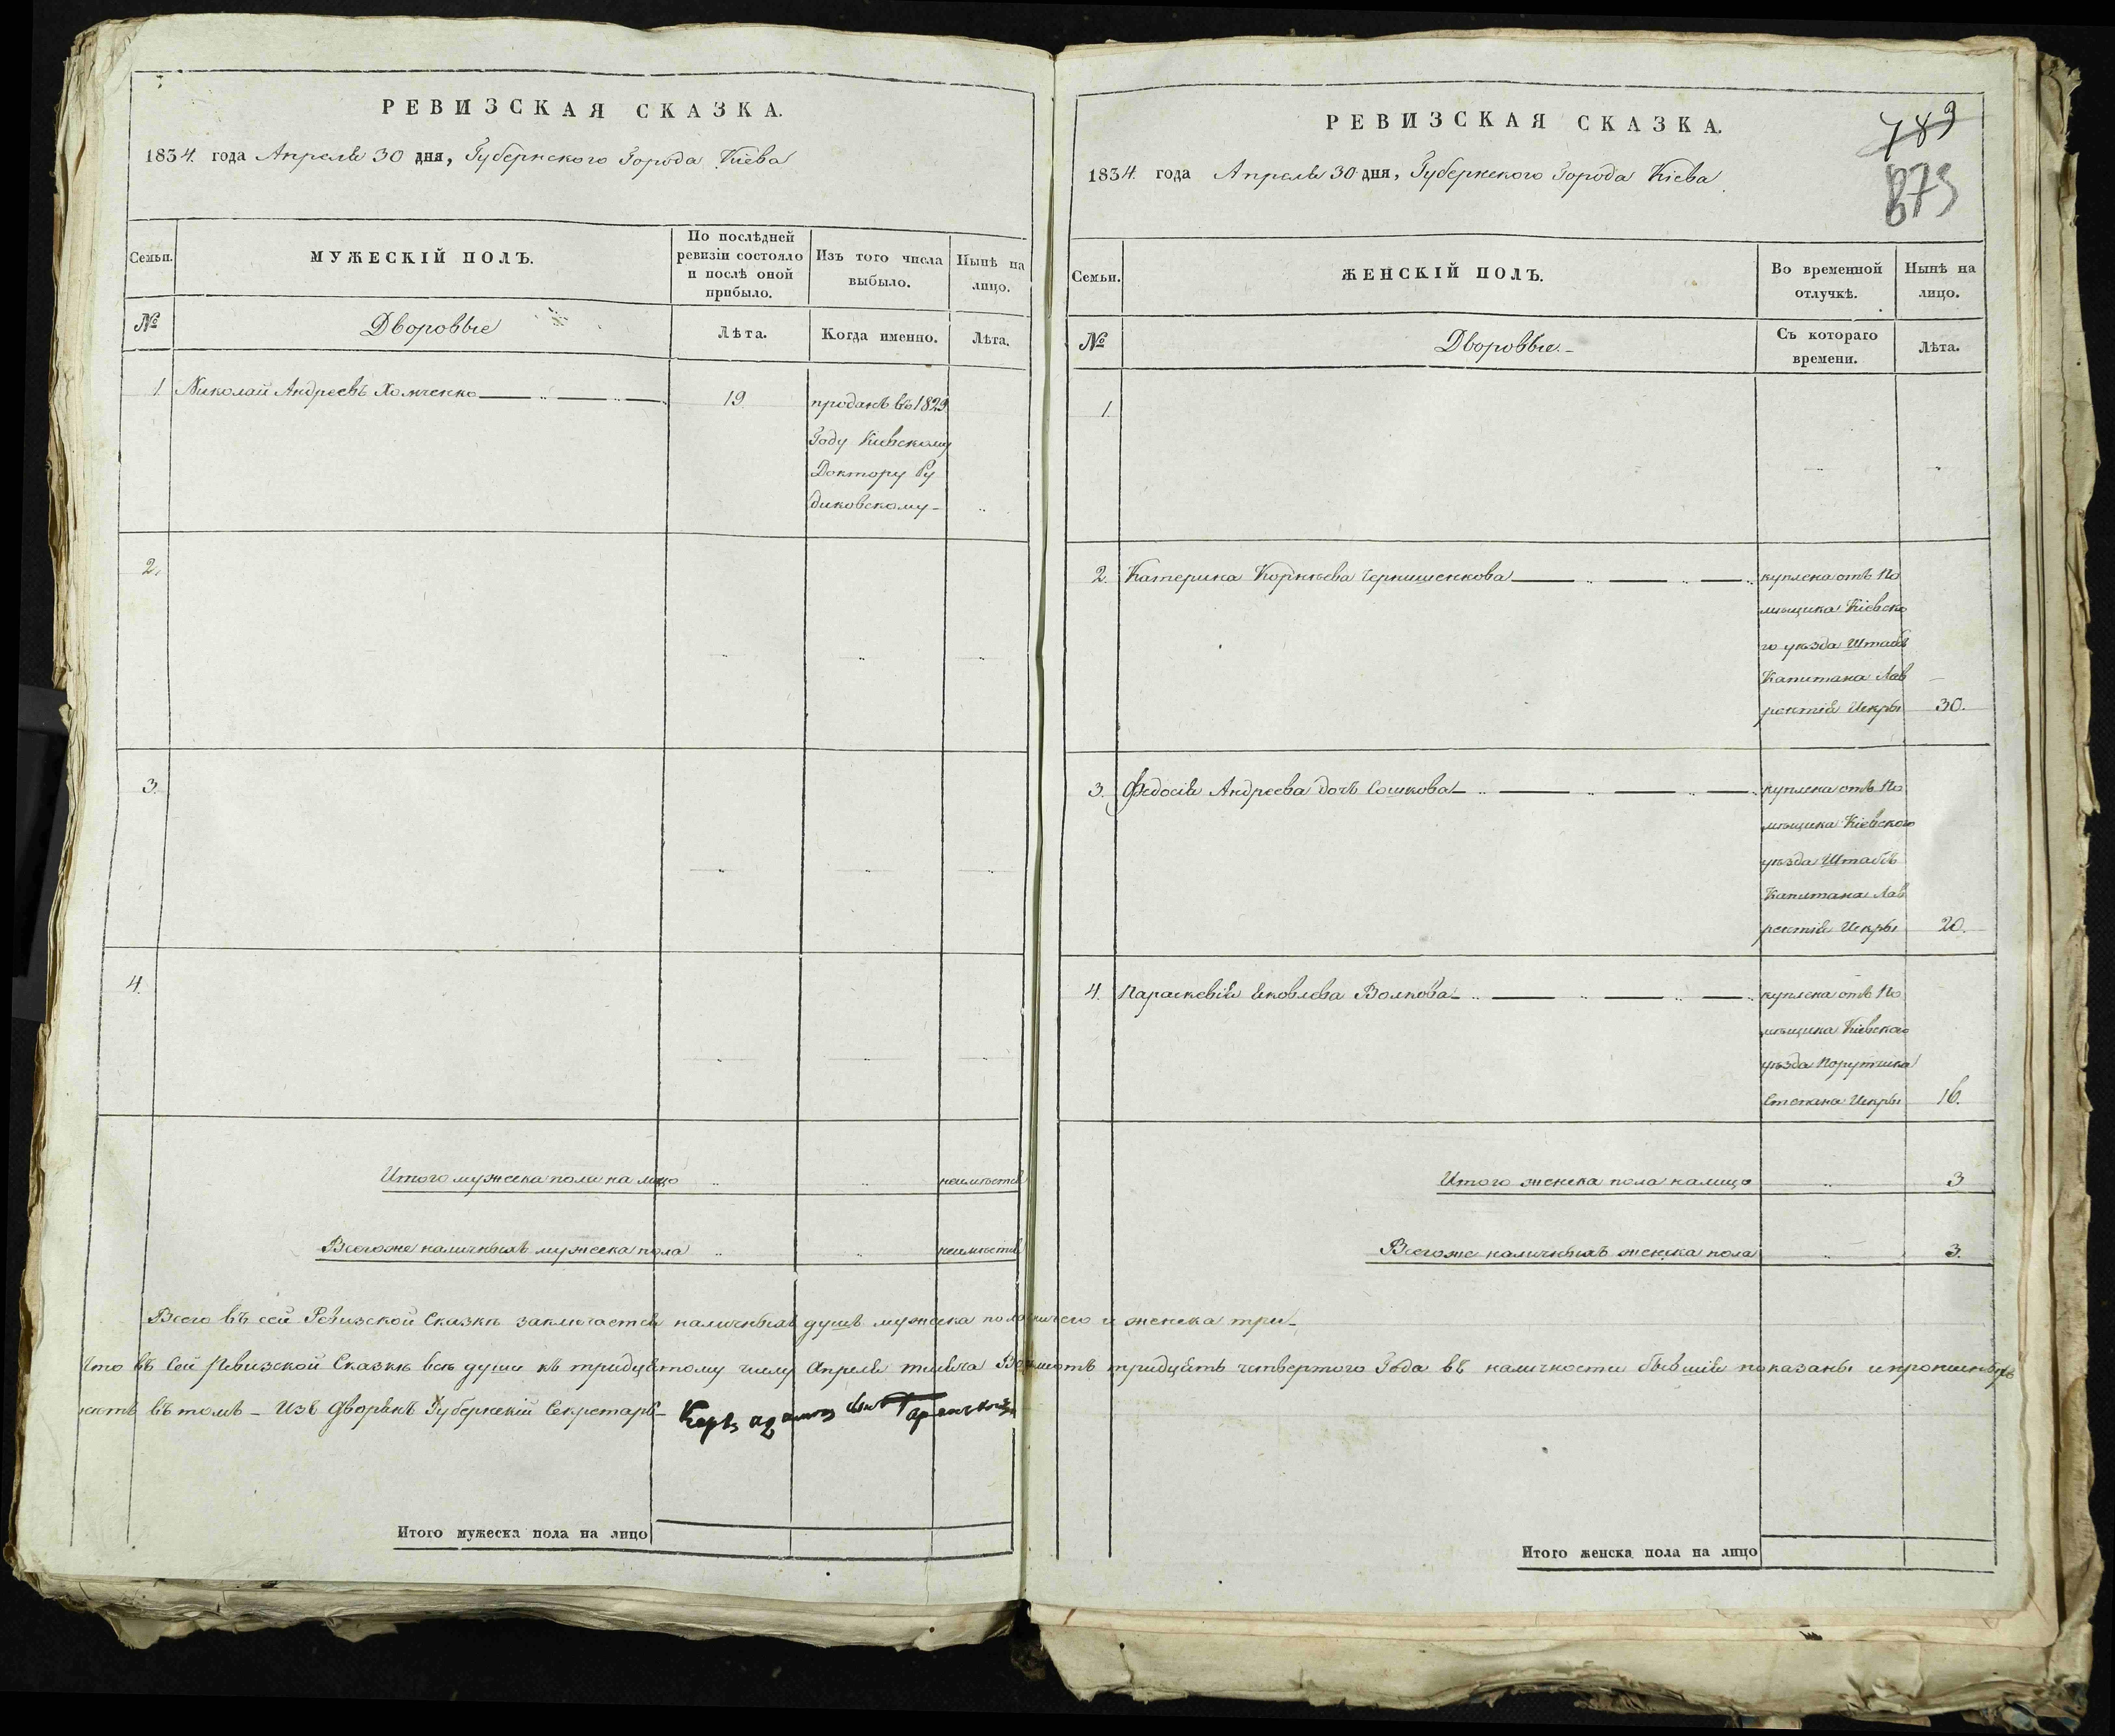 РЕВИЗСКАЯ СКАЗКА.
1834. года Апреля 30 дня, Губернского Города Кіева
Семьи.
МУЖЕСКІЙ ПОЛЪ.
По послѣдней
ревизіи состояло
и послѣ оной
прибыло.
Изъ того числа
выбыло.
Нынѣ на
лицо.
№
Дворовые
Лѣта.
Когда именно.
Лѣта.
1. Николай Андреевъ Хомченко
19.
проданъ въ 1829
Году Киевскому
Доктору Ру
диковскому
2.
3.
4.
Итого мужеска пола на лицо неимѣется
Всего же наличныхъ мужеска пола неимѣется
РЕВИЗСКАЯ СКАЗКА.
789
873
1834. года Апреля 30 дня, Губернского Города Кіева
Семьи.
ЖЕНСКІЙ ПОЛЪ.
Во временной
отлучкѣ.
Нынѣ на
лицо.
№
Дворовые.
Съ котораго
времени.
Лѣта.
1.
2. Катерина Корнѣева Чернишенкова
куплена отъ По
мѣщика Кіевско
го уѣзда Штабъ
Капитана Лав
рентія Искры 30.
3. Федосія Андреева дочь Сошкова
куплена отъ По
мѣщика Кіевского
уѣзда Штабъ
Капитана Лав
рентія Искры 20.
4. Параскевія Яковлева Волкова
куплена отъ По
мѣщика Кіевского
уѣзда Порутчика
Степана Искры 16.
Итого женска пола налицо 3
Всего же наличныхъ женска пола 3.
Всего въ сей Ревизской Сказкѣ заключается наличныхъ душъ мужеска пола ничего и женска три
Что въ Сей Ревизской Сказкѣ всѣ души къ тридцятому числу Апреля тысяча Восимсотъ тридцять четвертого Года въ наличности бывшія показаны и
нетъ въ томъ – Изъ Дворянъ Губернскій Секретарь –
Итого мужеска пола на лицо
Итого женска пола на лицо